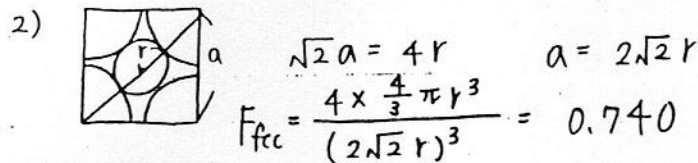 2)
r a √2 a = 4r a = 2√2 r
F_fcc = (4 × 4/3 π r³) / (2√2 r)³ = 0.740